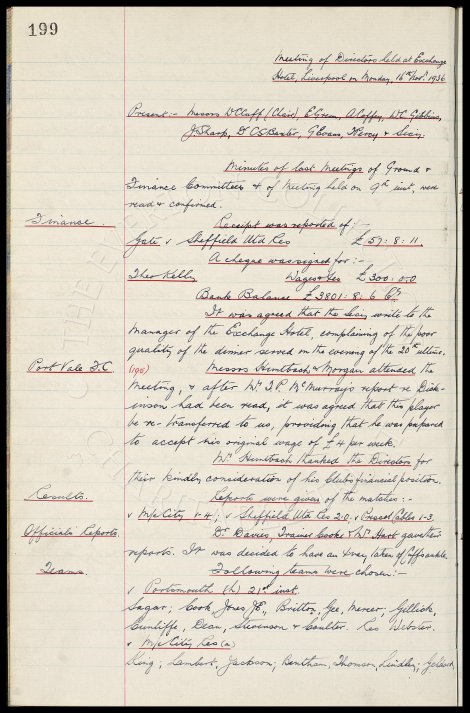 199
Meeting of Directors held at Exchange
Hotel, Liverpool on Monday, 16th Novr. 1936
Present:- Messrs W C Cuff (Chair), E Green, A Coffey, W C Gibbins,
J Sharp, Dr C S Baxter, G Evans, & Secy.
Minutes of last Meetings of Ground &
Finance Committees & of Meeting held on 9th inst, were
read & confirmed.
Finance. Receipt was reported of :-
Gate v Sheffield Utd Res £57: 8: 11.
A cheque was signed for :-
Theo Kelly Wages & £300: 0: 0
Bank Balance £3801: 8: 6 Cr
It was agreed that the Secy write to the
Manager of the Exchange Hotel, complaining of the poor
quality of the dinner served on the evening of the 28th ultimo.
Port Vale F.C. (190) Messrs Huntbach & Morgan attended the
Meeting, & after Mr J.P. McMurray's report re Dick-
inson had been read, it was agreed that this player
be re-transferred to us, providing that he was prepared
to accept his original wage of £4 per week.
Mr Huntbach thanked the Directors for
their kindly consideration of his Club's financial position.
Results. Reports were given of the matches :-
v M/c City 1-4; v Sheffield Utd Res 2-0. v Prescot Cables 1-3.
Officials Reports. Dr Davies, Trainer Cooke & Mr Hart gave their
reports. It was decided to have an Xray taken of C ankle.
Teams. Following teams were chosen :-
v Portsmouth (h) 21st inst.
Sagar; Cook, Jones J.E., Britton, Gee, Mercer, Gillick,
Cunliffe, Dean, Stevenson & Coulter. Res Webster.
v M/c City Res (a)
King; Lambert, Jackson; Bentham, Thomson, Lindley; Geldard